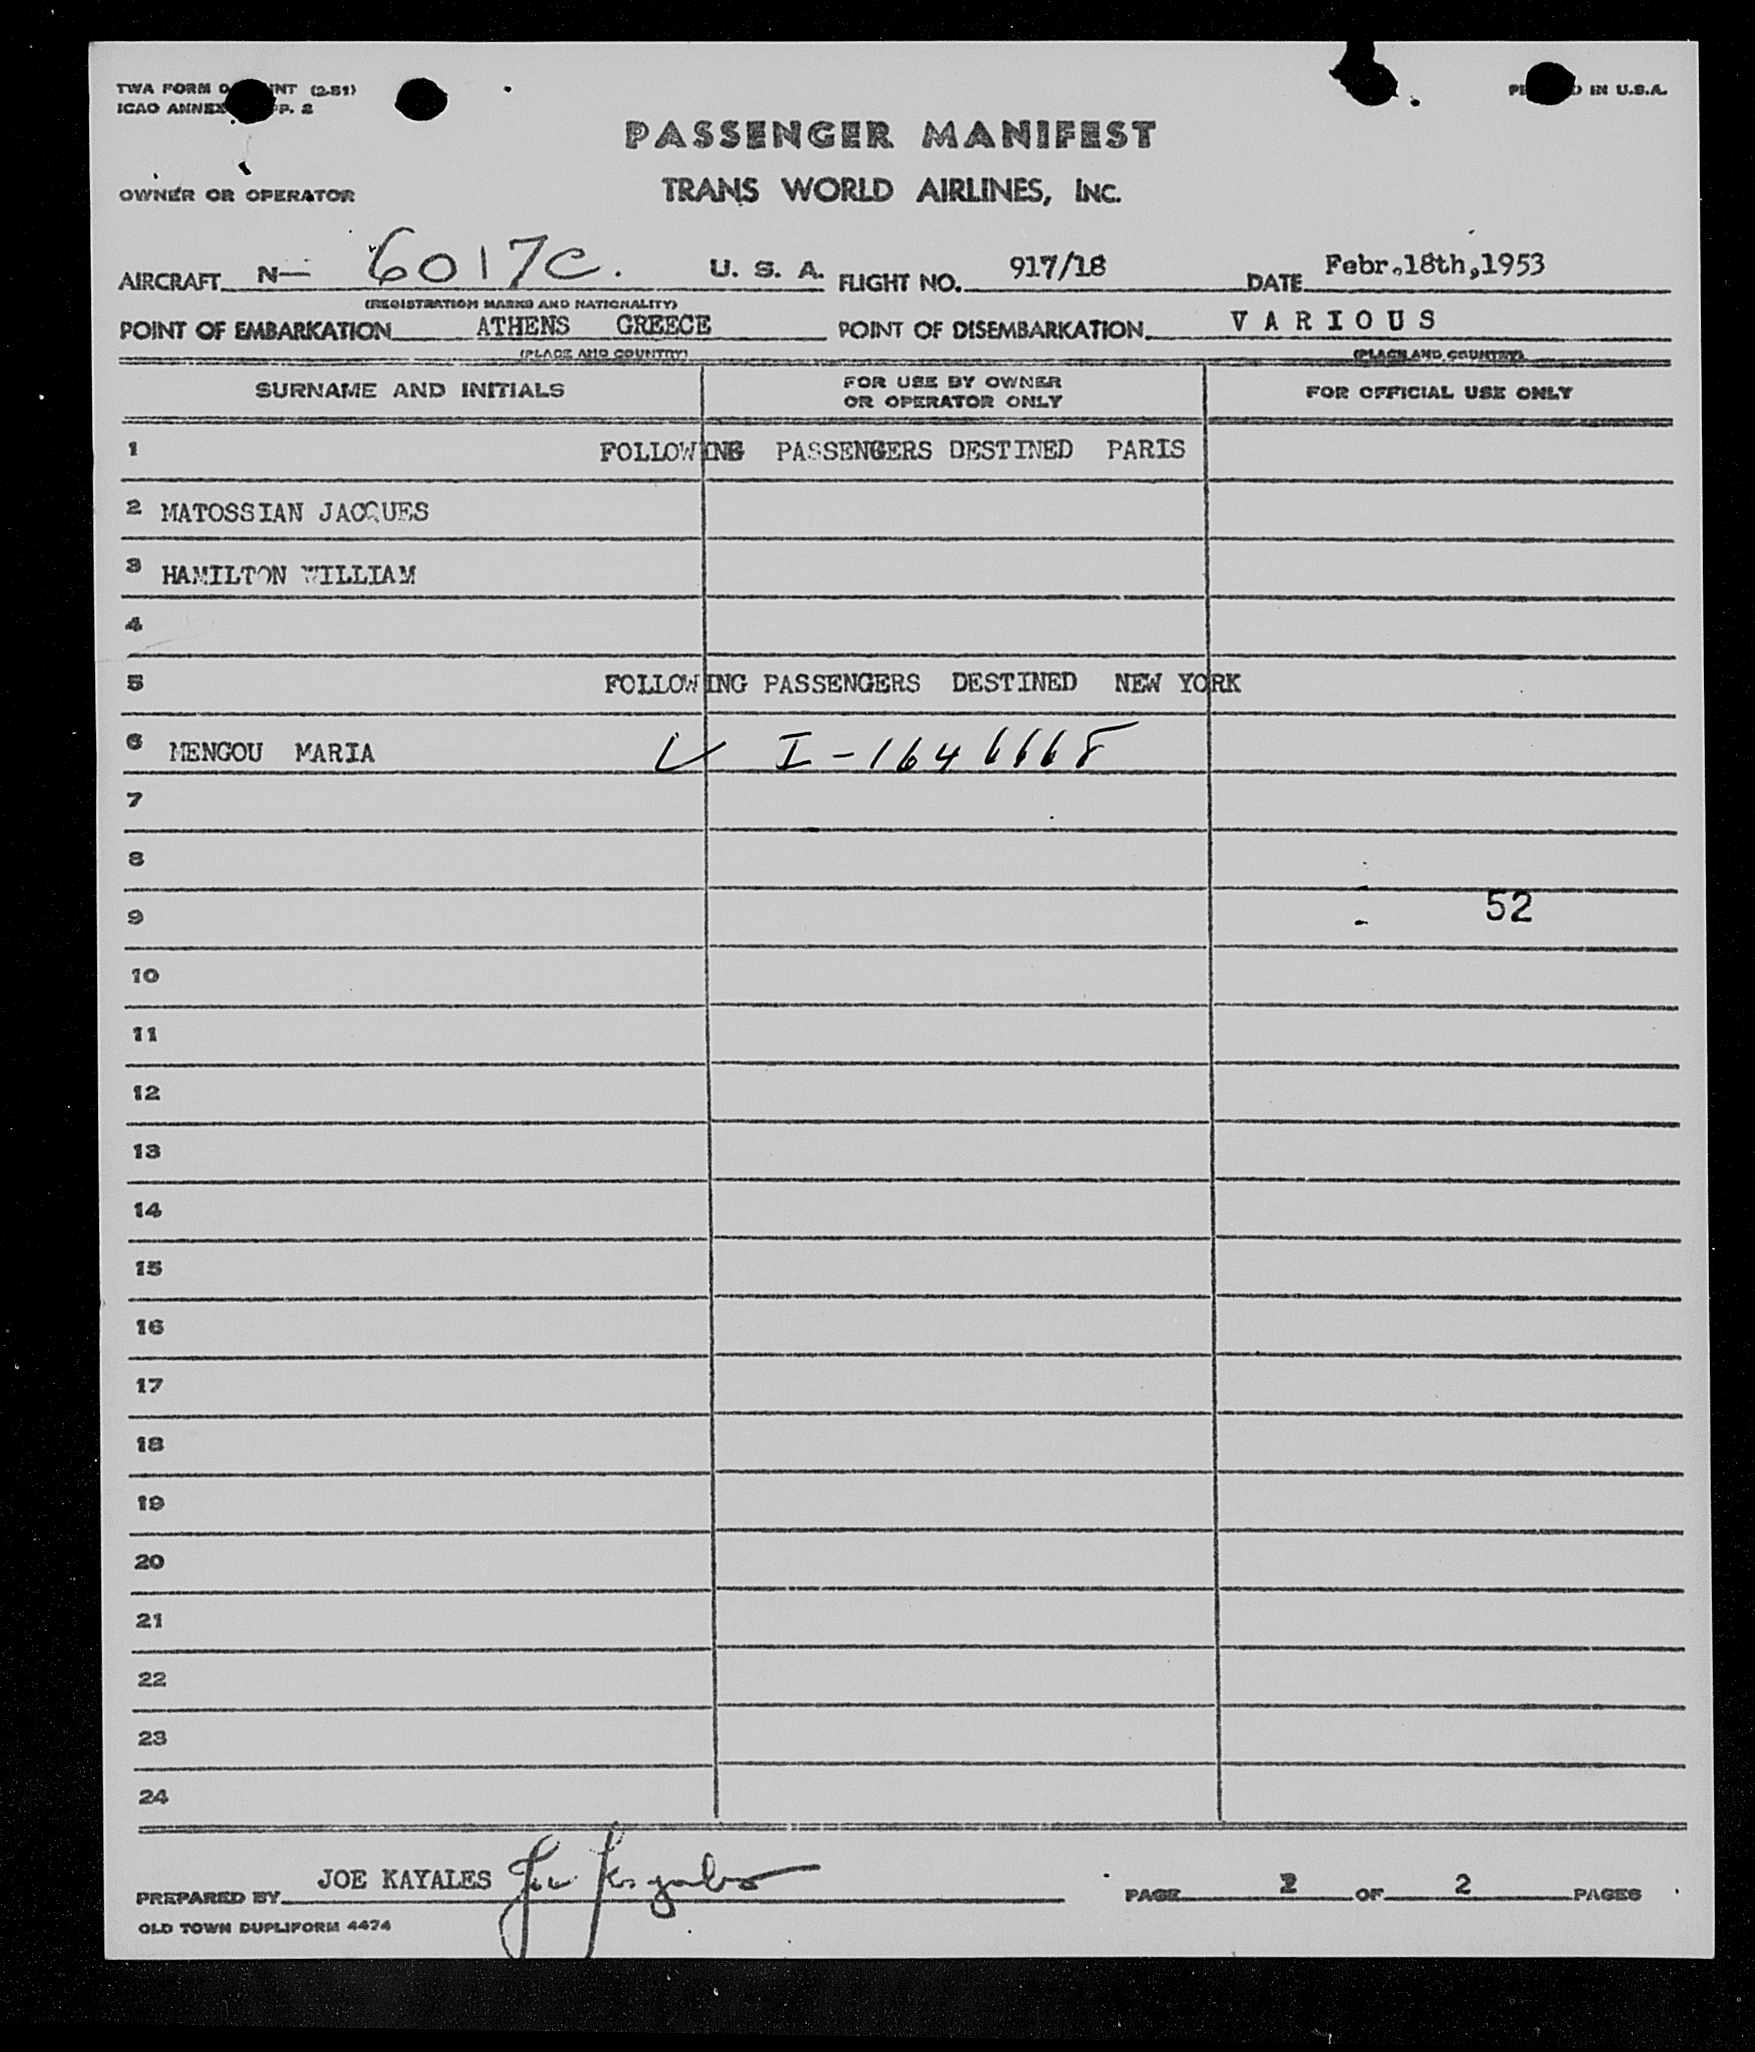 TWA FORM INT (2-51) IN U.S.A.
ICAO ANNEX PP. 2
PASSENGER MANIFEST
OWNER OR OPERATOR TRANS WORLD AIRLINES, INC.
AIRCRAFT N— 6017C. U. S. A. FLIGHT NO. 917/18 DATE Febr.18th,1953
(REGISTRATION MARKS AND NATIONALITY)
POINT OF EMBARKATION ATHENS GREECE POINT OF DISEMBARKATION VARIOUS
(PLACE AND COUNTRY) (PLACE AND COUNTRY)
SURNAME AND INITIALS FOR USE BY OWNER OR OPERATOR ONLY FOR OFFICIAL USE ONLY
1 FOLLOWING PASSENGERS DESTINED PARIS
2 MATOSSIAN JACQUES
3 HAMILTON WILLIAM
4
5 FOLLOWING PASSENGERS DESTINED NEW YORK
6 MENGOU MARIA ✓ I-1646668
7
8
9 52
10
11
12
13
14
15
16
17
18
19
20
21
22
23
24
PREPARED BY JOE KAYALES Joe Kayales PAGE 2 OF 2 PAGES
OLD TOWN DUPLIFORM 4474